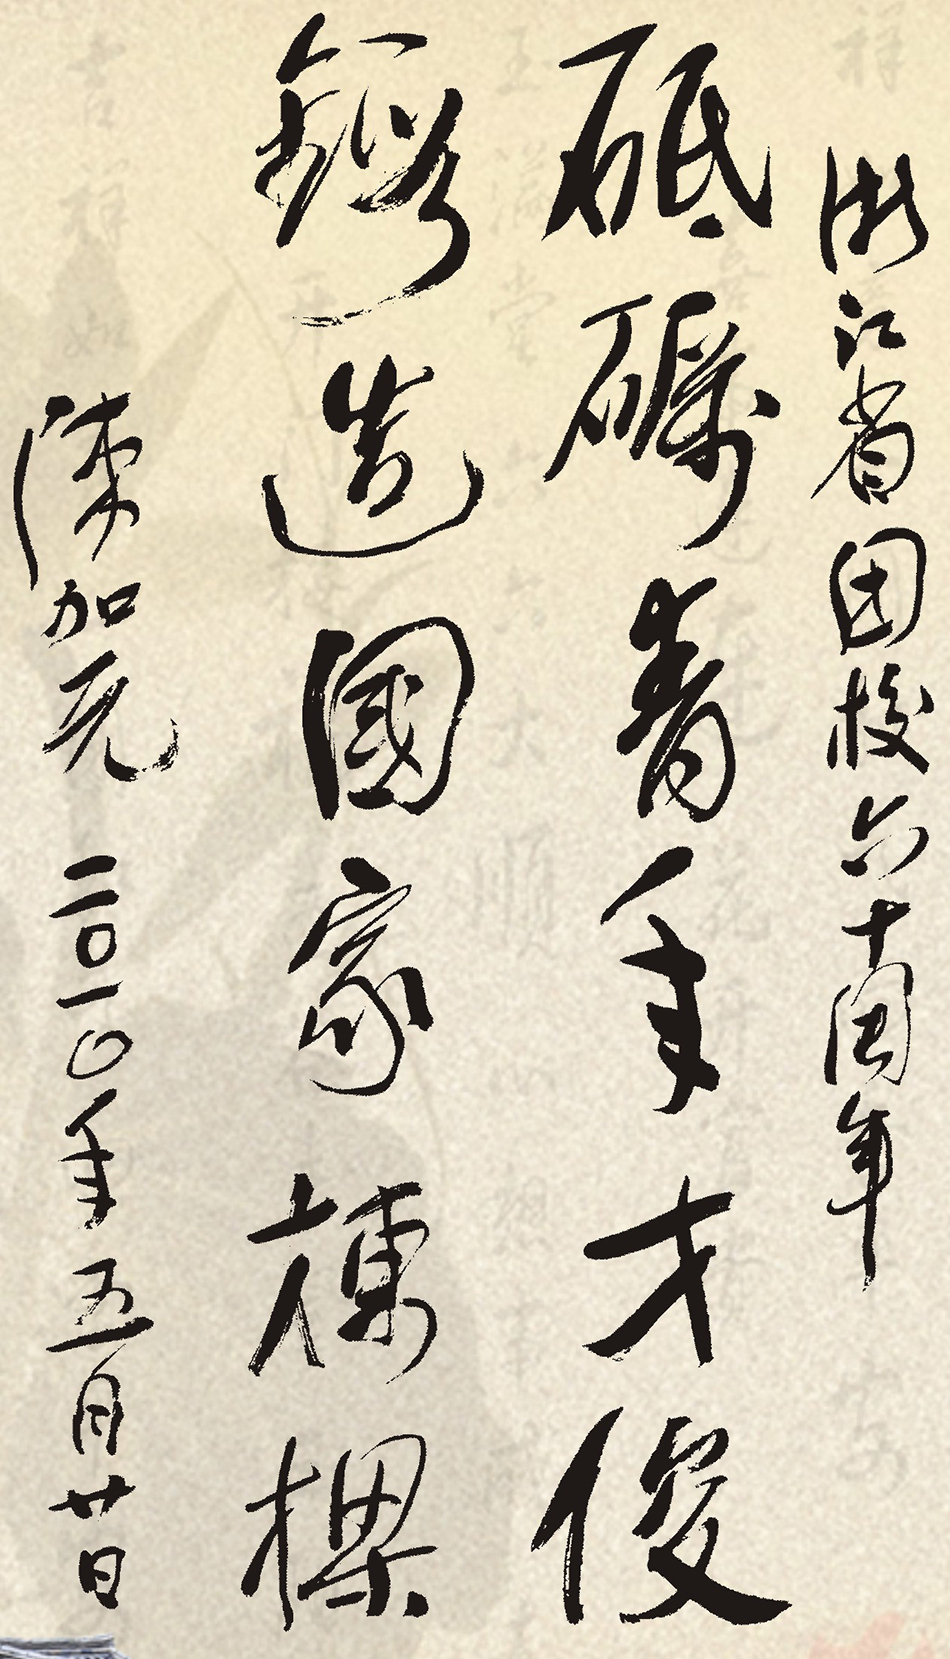 浙江省团校六十周年
砥礪青年才俊
鑄造國家棟樑
陳加元 二〇一〇年五月廿日